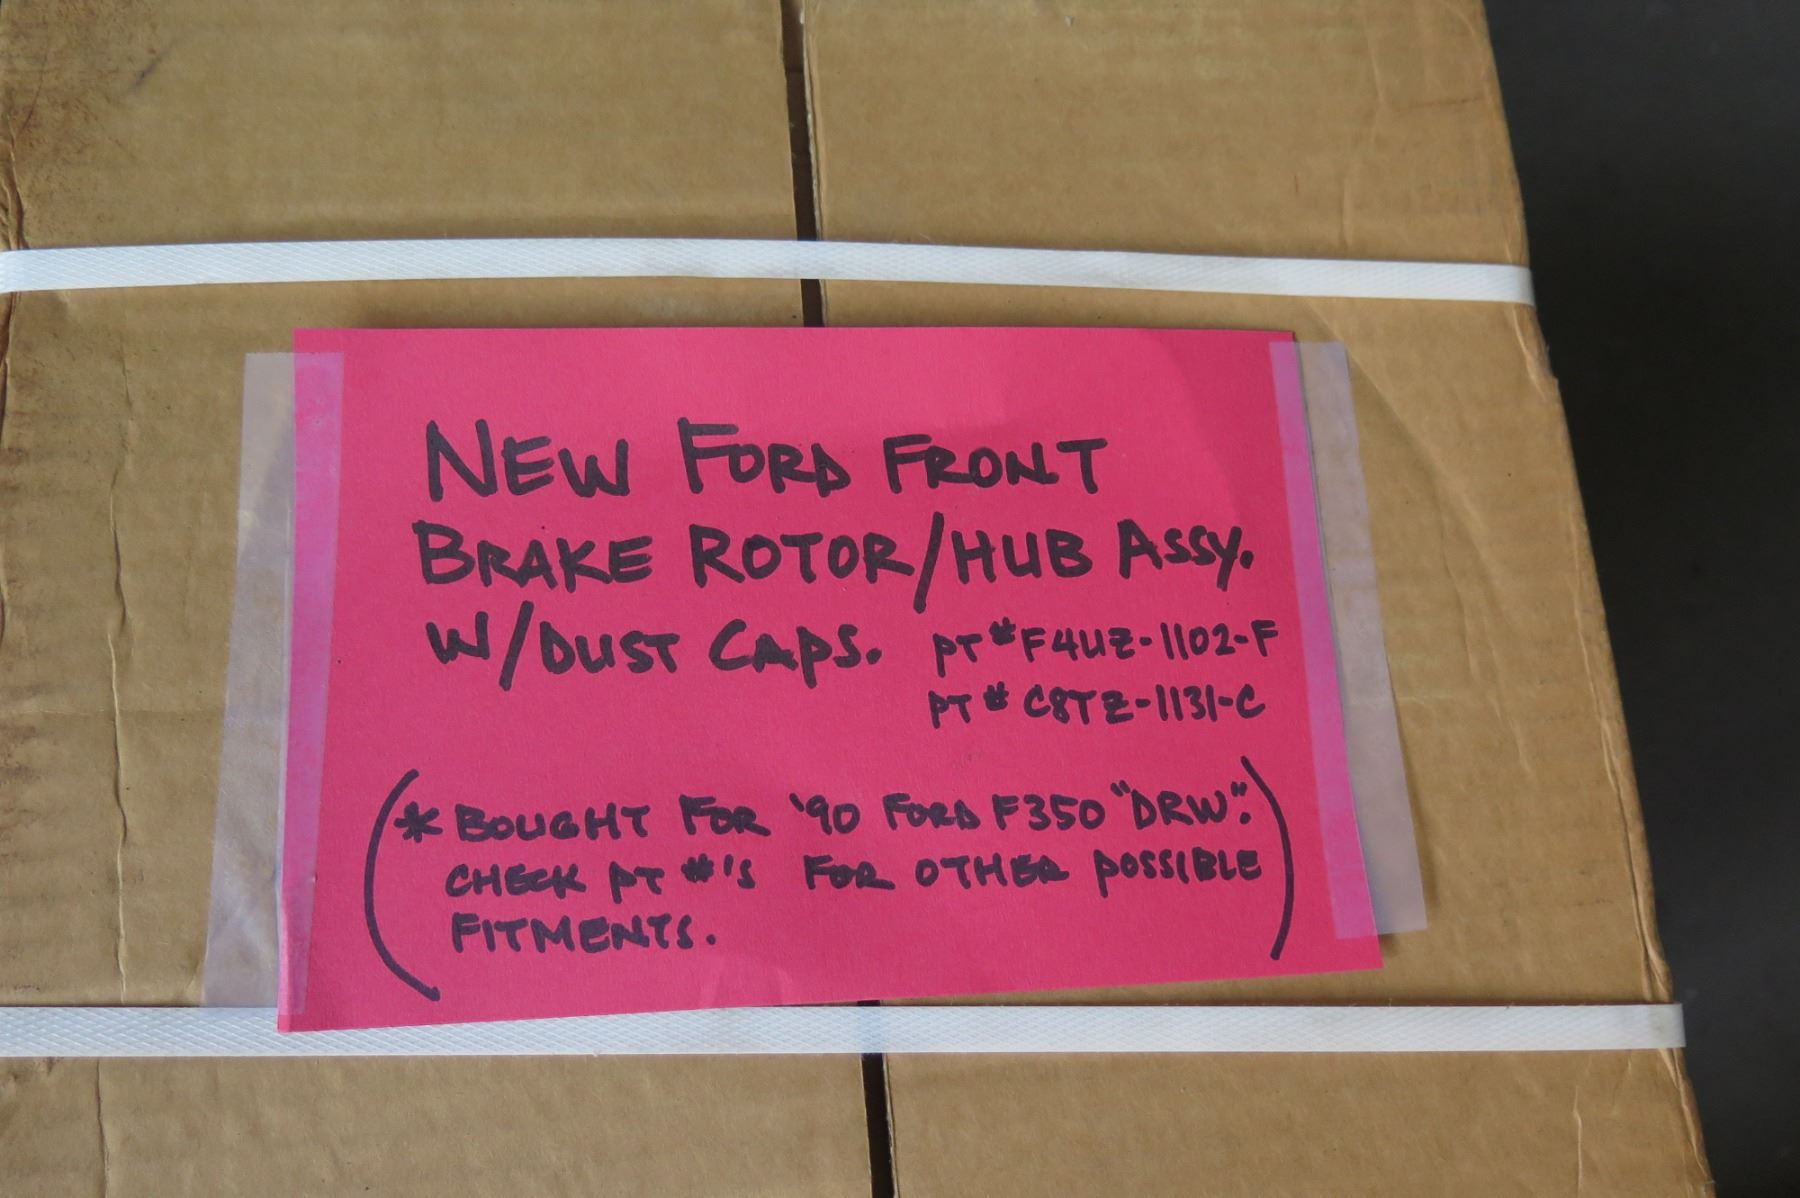 NEW FORD FRONT
BRAKE ROTOR/HUB ASSY.
W/DUST CAPS. PT # F4UZ-1102-F
PT # C8TZ-1131-C
(* BOUGHT FOR '90 FORD F350 "DRW".
CHECK PT #'S FOR OTHER POSSIBLE
FITMENTS.)